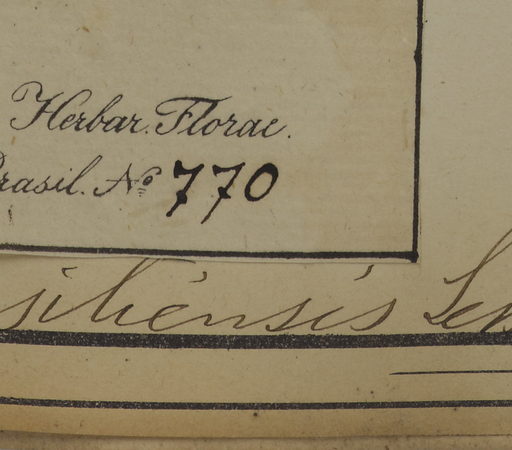 Herbar. Florae.
Brasil. No 770
siliensis